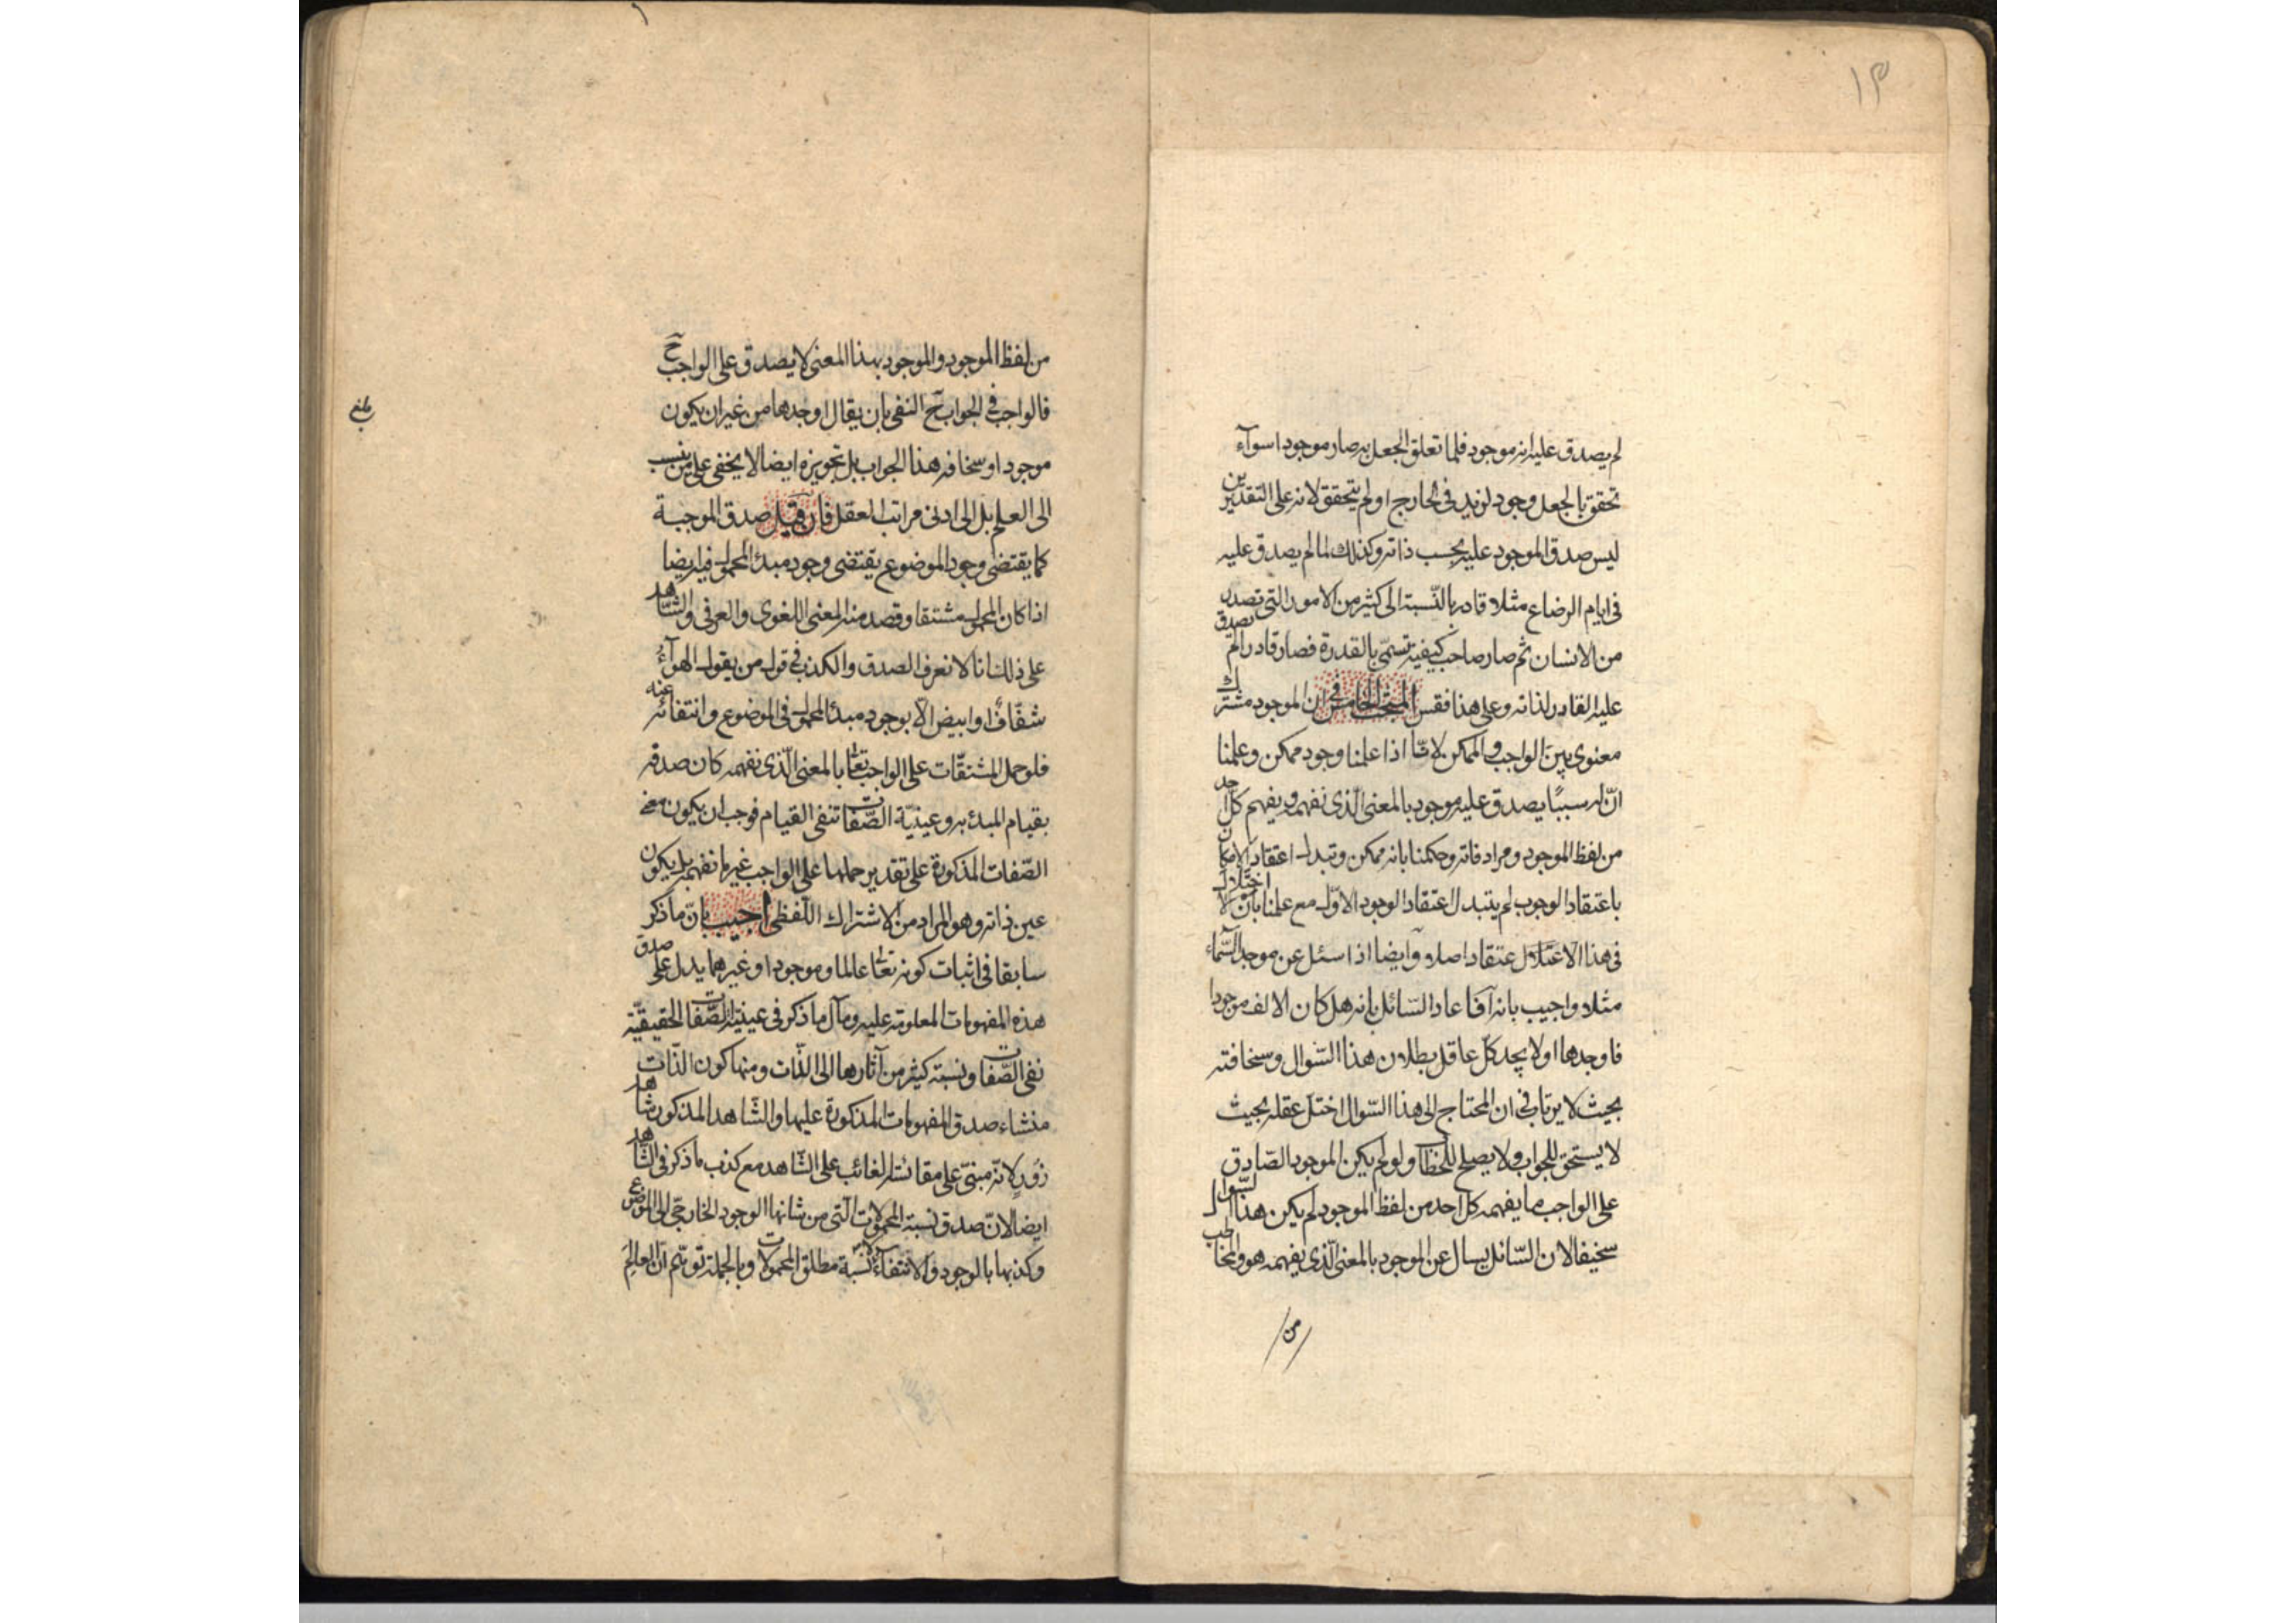 ١٣
لم يصدق عليه انه موجود فلما تعلق الجعل به صار موجودا سوآء
تحقق بالجعل وجود لزيد في الخارج او لم يتحقق لانه على التقديرين
ليس صدق الموجود عليه بحسب ذاته وكذلك لما لم يصدق عليه
في ايام الرضاع مثلا قادر بالنّسبة الى كثير من الامور التي تصدر
من الانسان ثم صار صاحب كيفية تسمّى بالقدرة فصار قادرا لم تصدق
عليه القادر لذاته وعلى هذا فقس المبحث الخامس في ان الموجود مشترك
معنوى بين الواجب والممكن لانّا اذا علمنا وجود ممكن وعلمنا
انّ له سببًا يصدق عليه موجود بالمعنى الّذى نفهمه ويفهم كل احد
من لفظ الموجود ومرادفاته وحكمنا بانه ممكن وتبدل اعتقاد الامكان
باعتقاد الوجوب لم يتبدل اعتقاد الوجود الاوّل مع علمنا بان لا اختلال
في هذا الاعتقاد اصلا وايضا اذا سئل عن موجد السّماء
مثلا واجيب بانه فاعاد السّائل بانه هل كان الالف موجودا
فاوجدها او لا يجد كلّ عاقل بطلان هذا السّوال وسخافته
بحيث لا يرتاب في ان المحتاج الى هذا السّوال اختلّ عقله بحيث
لا يستحق للجواب ولا يصلح للخطاب ولو لم يكن الموجود الصّادق
على الواجب ما يفهمه كل احد من لفظ الموجود لم يكن هذا السّوال
سخيفا لان السّائل يسال عن الموجود بالمعنى الّذى يفهمه هو والمخاطب
من
من لفظ الموجود والموجود بهذا المعنى لا يصدق على الواجب ح
فالواجب في الجواب ح النفى بان يقال اوجدها من غير ان يكون
موجودا وسخافه هذا الجواب بل تجويزه ايضا لا يخفى على من ينسب
الى العلم بل الى ادنى مراتب العقل فان قيل صدق الموجبة
كما يقتضى وجود الموضوع يقتضى وجود مبدء المحمول فيه ايضا
اذا كان المحمول مشتقا وقصد منه المعنى اللغوى والعرفى والشّاهد
على ذلك انا لا نعرف الصدق والكذب في قول من يقول الهوآء
شفّاف او ابيض الّا بوجود مبدء المحمول في الموضوع وانتفائه عنه
فلو حمل المشتقّات على الواجب تعالى بالمعنى الّذى نفهمه كان صدقه
بقيام المبدء به وعينيّة الصّفات تنفى القيام فوجب ان يكون معنى
الصّفات المذكورة على تقدير حملها على الواجب غير ما نفهمه بل يكون
عين ذاته وهو المراد من الاشتراك اللّفظى اجيب بانّ ما ذكر
سابقا في اثبات كونه تعالى عالما وموجودا وغيرهما يدل على صدق
هذه المفهومات المعلومة عليه ومآل ما ذكر في عينية الصّفات الحقيقيّة
نفى الصّفات ونسبة كثير من آثارها الى الذّات ومنها كون الذّات
منشاء صدق المفهومات المذكورة عليها والشّاهد المذكور شاهد
زُورٍ لانّه مبنىّ على مقائسة الغائب على الشّاهد مع كذب ما ذكر في الشّاهد
ايضا لانّ صدق نسبة المحمولات الّتى من شانها الوجود الخارجى الى الموضوع
وكذبها بالوجود والانتفاء لا نسبة مطلق المحمولات وبالجملة توهم انّ العالم